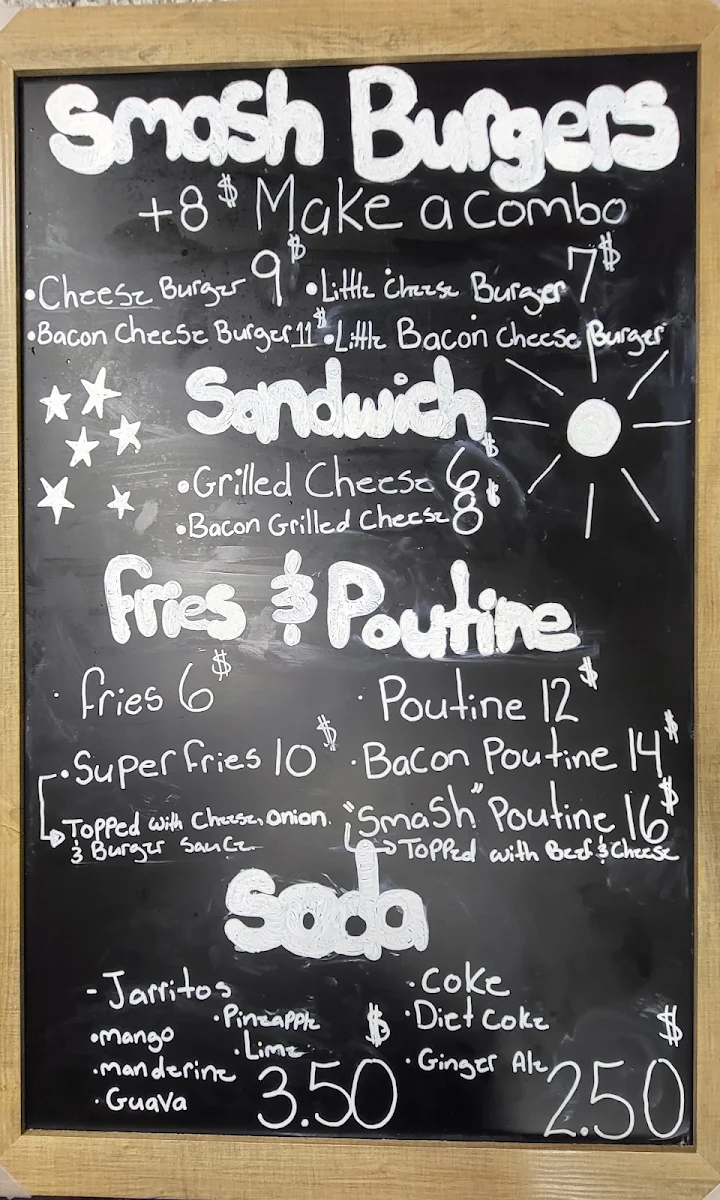 Smash Burgers
+8$ Make a combo
•Cheese Burger 9$ •Little Cheese Burger 7$
•Bacon Cheese Burger 11$ •Little Bacon Cheese Burger
Sandwich
•Grilled Cheese 6$
•Bacon Grilled Cheese 8$
Fries & Poutine
· Fries 6$ · Poutine 12$
·Super Fries 10$ ·Bacon Poutine 14$
Topped with Cheese, onion. "Smash" Poutine 16$
& Burger Sauce. Topped with Beef & Cheese
Soda
-Jarritos
•mango
·manderine
·Guava
·Pineapple
·Lime
$
3.50
·Coke
·Diet Coke
·Ginger Ale
$
2.50